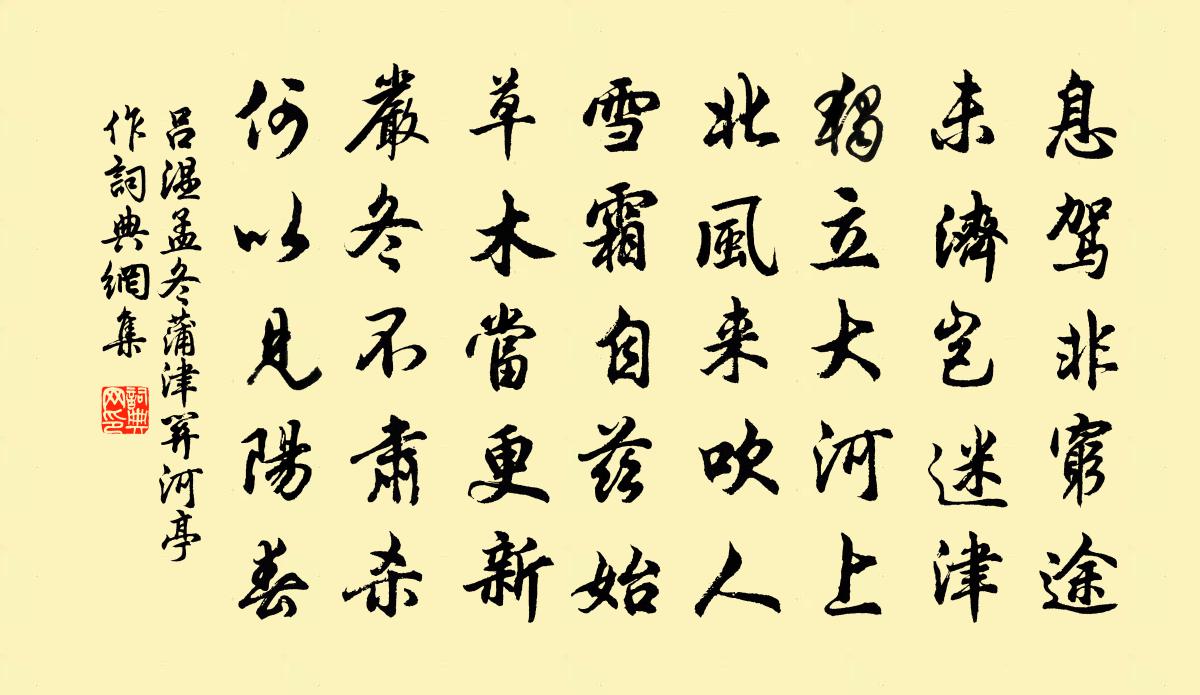 息駕非窮途
未濟豈迷津
獨立大河上
北風来吹人
雪霜自茲始
草木當更新
嚴冬不肅杀
何以見陽春
呂溫孟冬蒲津關河亭
作詞典網集
詞典
网印